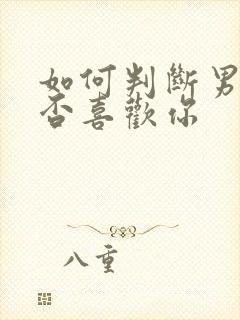 如何判斷男
否喜歡你
八重